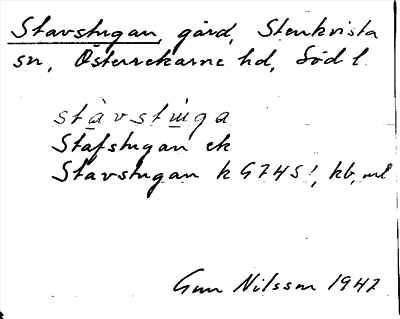 Stavstugan, gård, Stenkvista
sn, Österrekarne hd, Söd l.
stàvstùga
Stafstugan ek
Stavstugan k G74S!, kb, ml
Gun Nilsson 1947